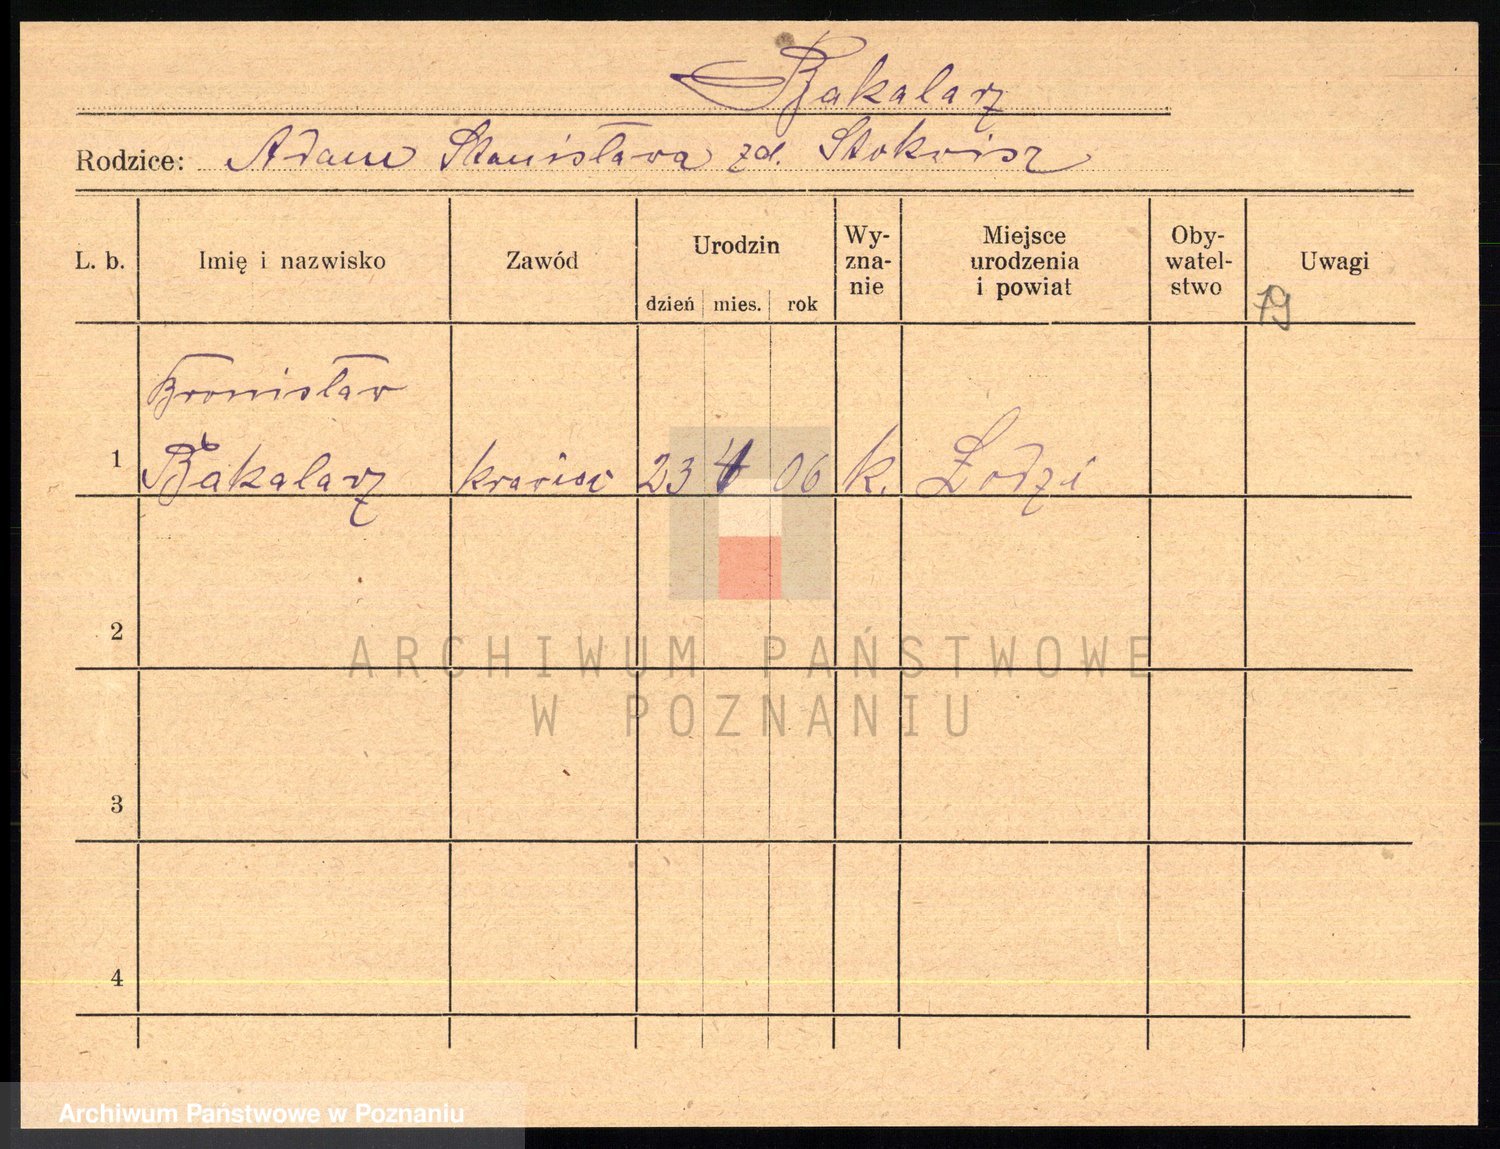 Bakalarz
Rodzice: Adam Stanisława zd. Stokwisz
L. b. Imię i nazwisko Zawód Urodzin dzień mies. rok Wy-zna-nie Miejsce urodzenia i powiat Oby-watel-stwo Uwagi
19
Bronisław
1 Bakalarz krawiec 23 4 06 k. Łodzi
2
ARCHIWUM PAŃSTWOWE
W POZNANIU
3
4
Archiwum Państwowe w Poznaniu